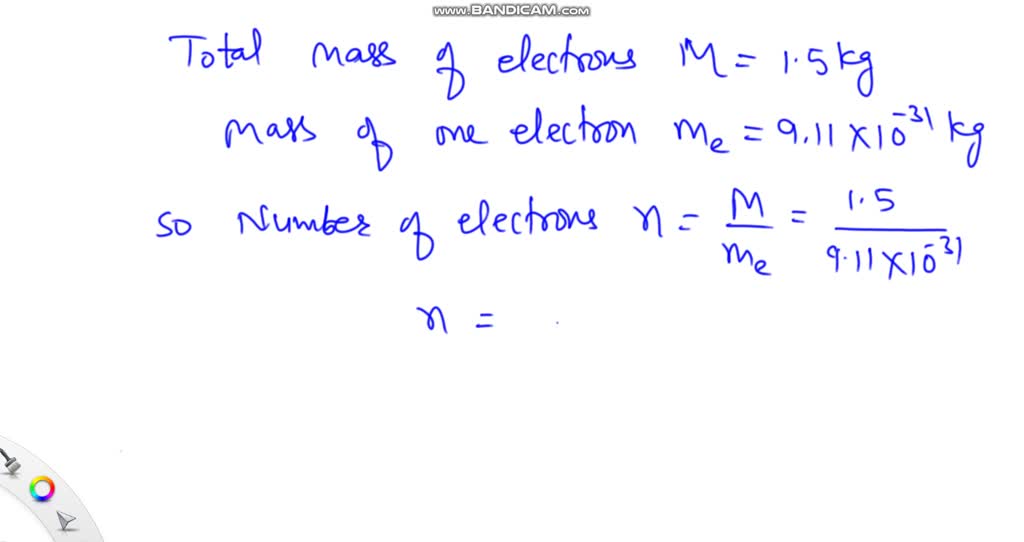 www.BANDICAM.com
Total mass of electrons M = 1.5 kg
mass of one electron me = 9.11 × 10^-31 kg
so Number of electrons n = M/me = 1.5/9.11×10^-31
n =